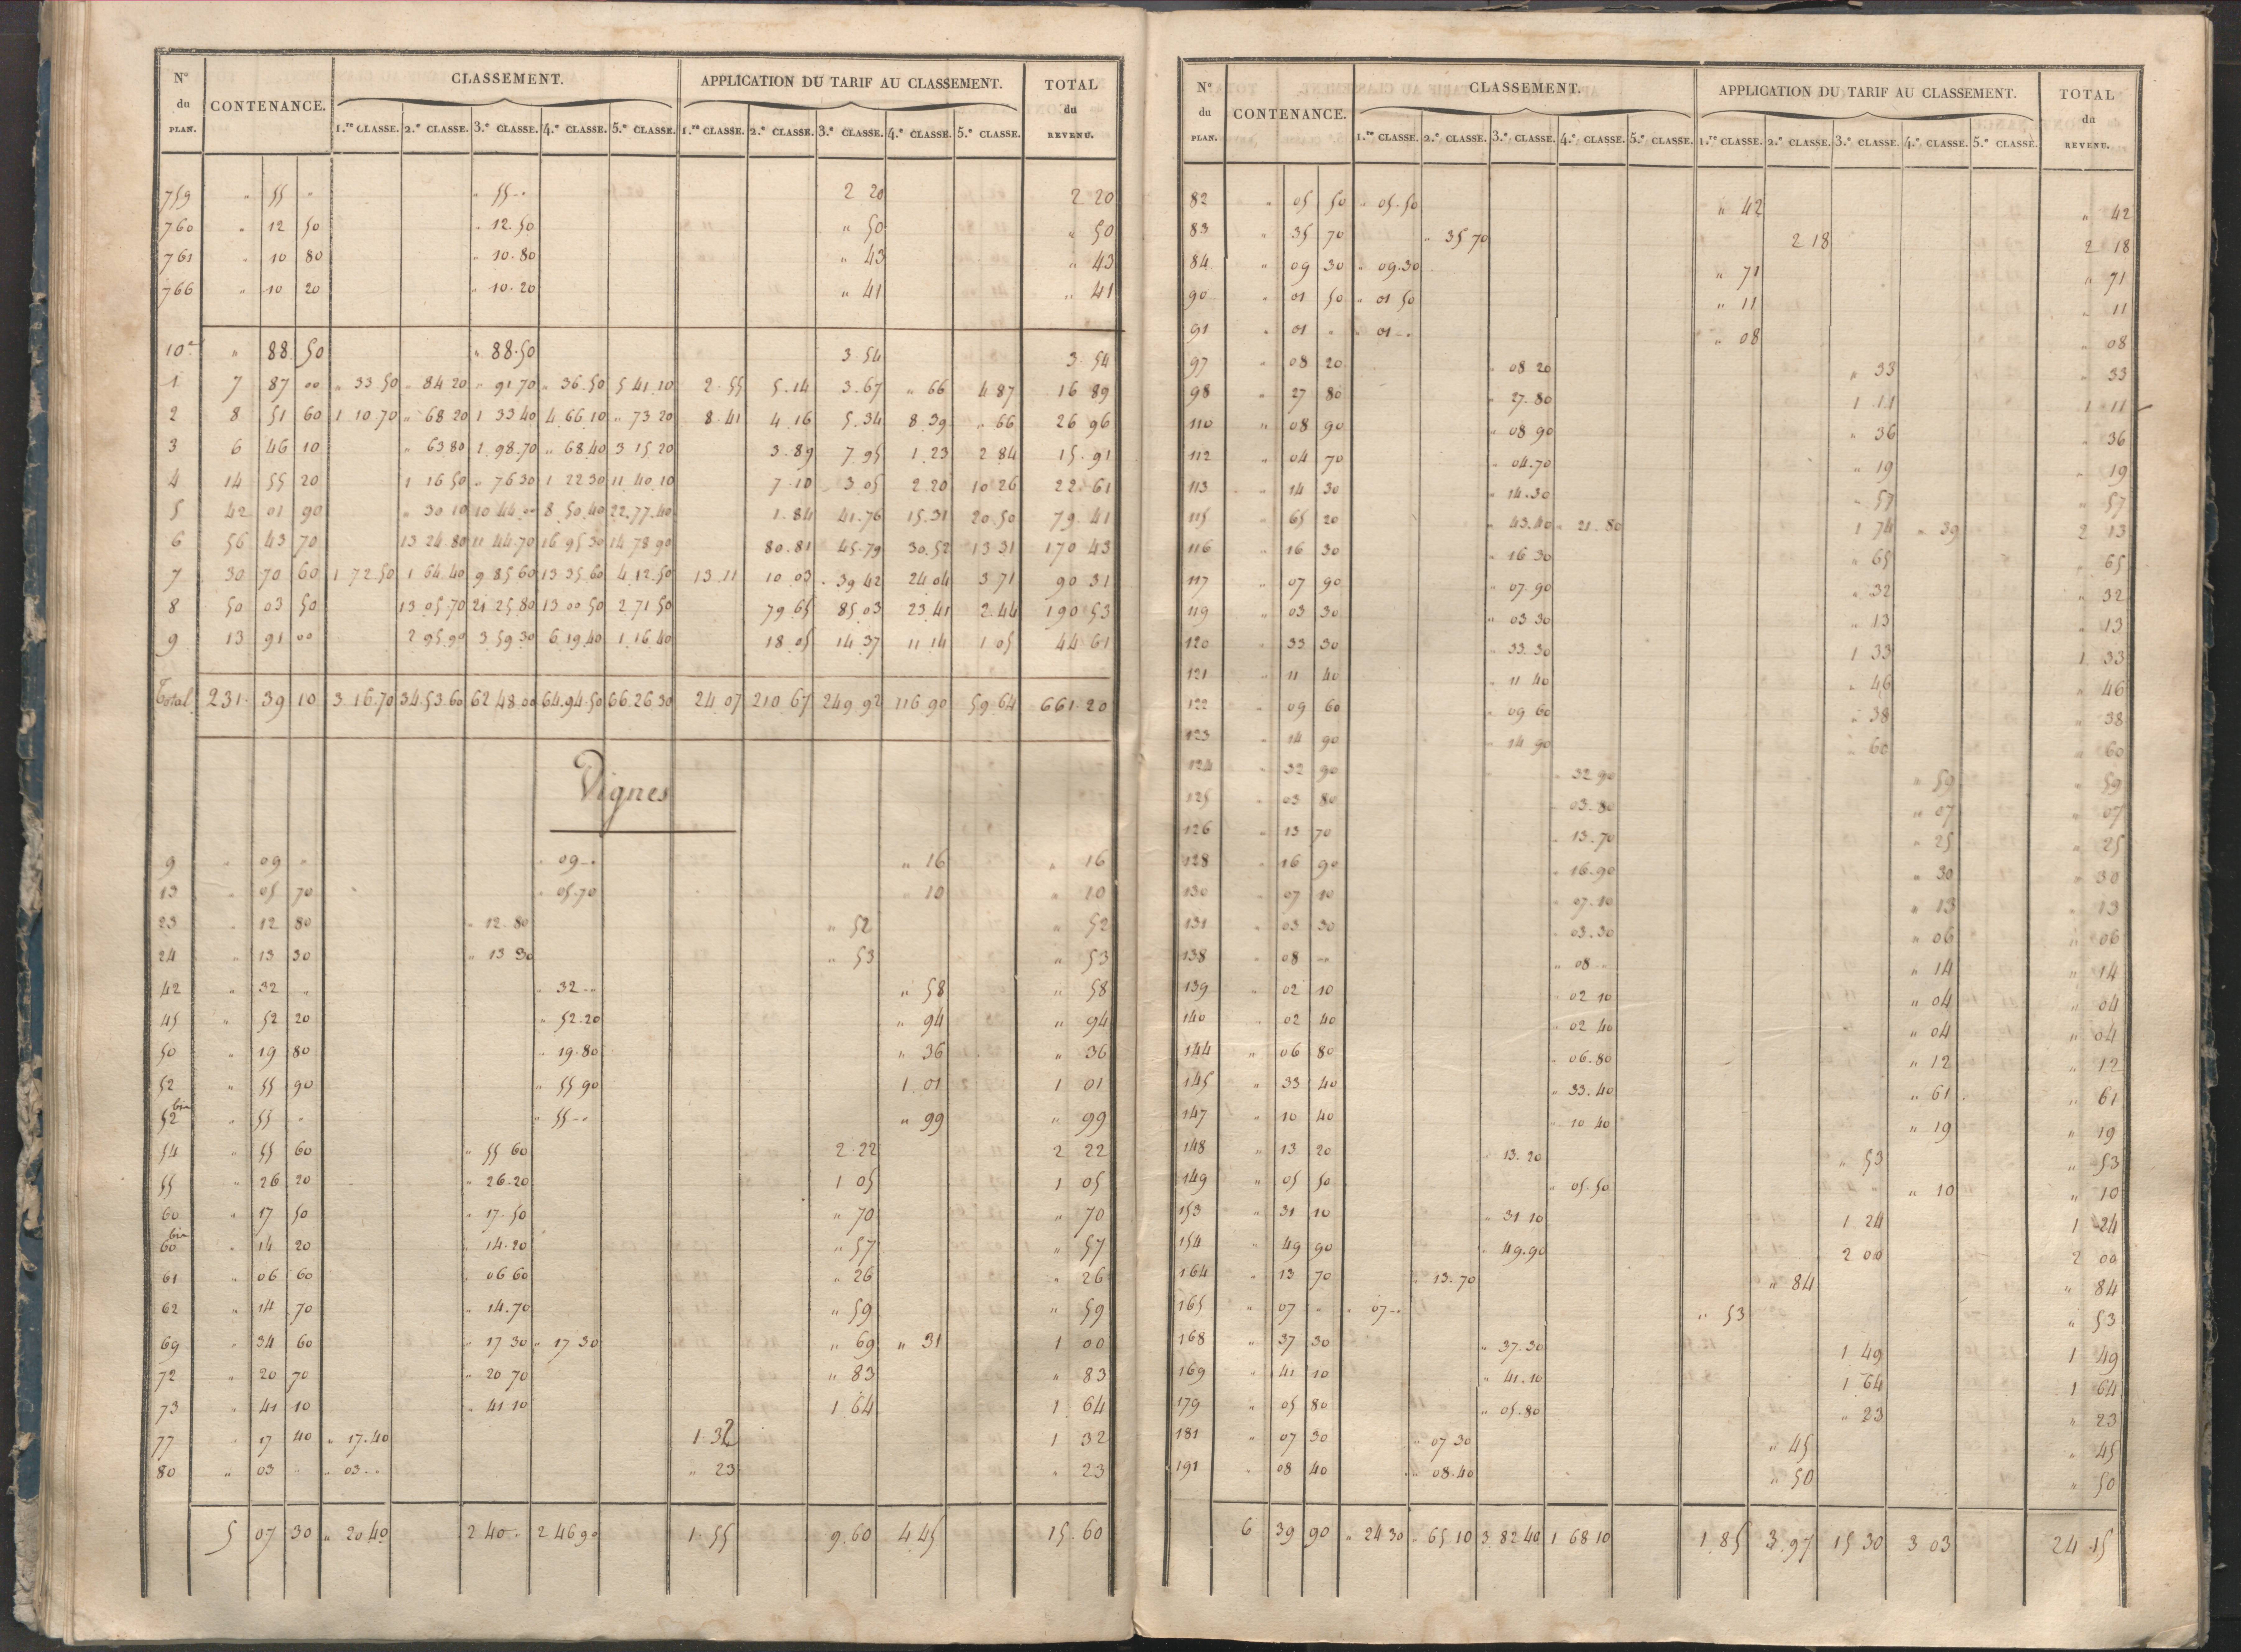 N° du PLAN. CONTENANCE. CLASSEMENT. APPLICATION DU TARIF AU CLASSEMENT. TOTAL du REVENU.
1.re CLASSE. 2.e CLASSE. 3.e CLASSE. 4.e CLASSE. 5.e CLASSE. 1.re CLASSE. 2.e CLASSE. 3.e CLASSE. 4.e CLASSE. 5.e CLASSE.
759 " 55 " " 55 - " 2 20 2 20
760 " 12 50 " 12.50 " 50 " 50
761 " 10 80 " 10.80 " 43 " 43
766 " 10 20 " 10.20 " 41 " 41
10e " 88 50 " 88.50 3.54 3.54
1 7 87 00 " 33.50 " 84 20 " 91.70 " 36.50 5 41.10 2.55 5.14 3.67 " 66 4 87 16 89
2 8 51 60 1 10.70 " 68 20 1 33 40 4 66 10 " 73 20 8.41 4 16 5.34 8 39 " 66 26 96
3 6 46 10 " 63 80 1.98.70 " 68 40 3 15.20 3.89 7.95 1.23 2 84 15.91
4 14 55 20 1 16 50 " 76 30 1 22 30 11 40.10 7.10 3.05 2.20 10 26 22.61
5 42 01 90 " 30 10 10 44 00 8.50.40 22.77.40 1.84 41.76 15.31 20.50 79.41
6 56 43 70 13 24.80 11 44.70 16 95 30 14 78 90 80.81 45.79 30.52 13 31 170 43
7 30 70 60 1 72 50 1 64.40 9 85 60 13 35.60 4.12.50 13.11 10.03 39 42 24 04 3.71 90 31
8 50 03 50 13 05.70 21 25.80 13 00 50 2 71 50 79.65 85 03 23 41 2.44 190 53
9 13 91 00 2 95.90 3 59 30 6 19.40 1.16.40 18.05 14 37 11 14 1 05 44 61
Total 231. 39 10 3 16.70 34.53.60 62 48.00 64.94.50 66.26.30 24 07 210 67 249 92 116 90 59 64 661.20
Vignes
9 " 09 " " 09 - " " 16 " 16
13 " 05 70 " 05.70 " 10 " 10
23 " 12 80 " 12.80 " 52 " 52
24 " 13 30 " 13 30 " 53 " 53
42 " 32 " " 32 - " " 58 " 58
45 " 52 20 " 52.20 " 94 " 94
50 " 19 80 " 19.80 " 36 " 36
52 " 55 90 " 55 90 1.01 1 01
52 bis " 55 " " 55 - " " 99 " 99
54 " 55 60 " 55 60 2.22 2 22
55 " 26 20 " 26.20 1 05 1 05
60 " 17 50 " 17.50 " 70 " 70
60 bis " 14 20 " 14.20 " 57 " 57
61 " 06 60 " 06 60 " 26 " 26
62 " 14 70 " 14.70 " 59 " 59
69 " 34 60 " 17 30 " 17 30 " 69 " 31 1 00
72 " 20 70 " 20 70 " 83 " 83
73 " 41 10 " 41 10 1 64 1 64
77 " 17 40 " 17.40 1.32 1 32
80 " 03 " " 03 - " " 23 " 23
5 07 30 " 20 40 2 40 " 2 46 90 1.55 9.60 4 45 15.60
N° du PLAN. CONTENANCE. CLASSEMENT. APPLICATION DU TARIF AU CLASSEMENT. TOTAL du REVENU.
1.re CLASSE. 2.e CLASSE. 3.e CLASSE. 4.e CLASSE. 5.e CLASSE. 1.re CLASSE. 2.e CLASSE. 3.e CLASSE. 4.e CLASSE. 5.e CLASSE.
82 " 05 50 " 05.50 " 42 " 42
83 " 35 70 " 35 70 2 18 2 18
84 " 09 30 " 09.30 " 71 " 71
90 " 01 50 " 01 50 " 11 " 11
91 " 01 " " 01 - " " 08 " 08
97 " 08 20 " 08 20 " 33 " 33
98 " 27 80 " 27.80 1 11 1 11
110 " 08 90 " 08 90 " 36 " 36
112 " 04 70 " 04.70 " 19 " 19
113 " 14 30 " 14.30 " 57 " 57
115 " 65 20 " 43.40 " 21.80 1 74 " 39 2 13
116 " 16 30 " 16 30 " 65 " 65
117 " 07 90 " 07.90 " 32 " 32
119 " 03 30 " 03 30 " 13 " 13
120 " 33 30 " 33.30 1 33 1 33
121 " 11 40 " 11 40 " 46 " 46
122 " 09 60 " 09 60 " 38 " 38
123 " 14 90 " 14 90 " 60 " 60
124 " 32 90 " 32 90 " 59 " 59
125 " 03 80 " 03.80 " 07 " 07
126 " 13 70 " 13.70 " 25 " 25
128 " 16 90 " 16.90 " 30 " 30
130 " 07 10 " 07.10 " 13 " 13
131 " 03 30 " 03.30 " 06 " 06
138 " 08 " " 08 " " 14 " 14
139 " 02 10 " 02 10 " 04 " 04
140 " 02 40 " 02 40 " 04 " 04
144 " 06 80 " 06.80 " 12 " 12
145 " 33 40 " 33.40 " 61 " 61
147 " 10 40 " 10 40 " 19 " 19
148 " 13 20 " 13.20 " 53 " 53
149 " 05 50 " 05.50 " 10 " 10
153 " 31 10 " 31 10 1 24 1 24
154 " 49 90 " 49.90 2 00 2 00
164 " 13 70 " 13.70 " 84 " 84
165 " 07 " " 07 - " " 53 " 53
168 " 37 30 " 37.30 1 49 1 49
169 " 41 10 " 41.10 1 64 1 64
179 " 05 80 " 05.80 " 23 " 23
181 " 07 30 " 07 30 " 45 " 45
191 " 08 40 " 08.40 " 50 " 50
6 39 90 " 24 30 " 65 10 3 82 40 1 68 10 1.85 3.97 15 30 3 03 24.15